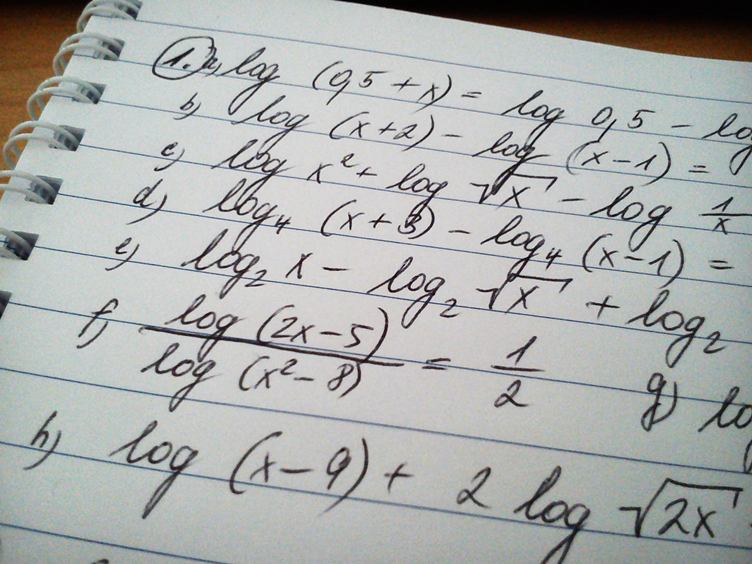 1. a) log (0,5 + x) = log 0,5 - log
b) log (x+2) - log (x-1) =
c) log x² + log √x - log 1/x
d) log₄ (x+3) - log₄ (x-1) =
e) log₂ x - log₂ √x + log₂
f) log (2x-5) / log (x²-8) = 1/2 g) log
h) log (x-9) + 2 log √2x